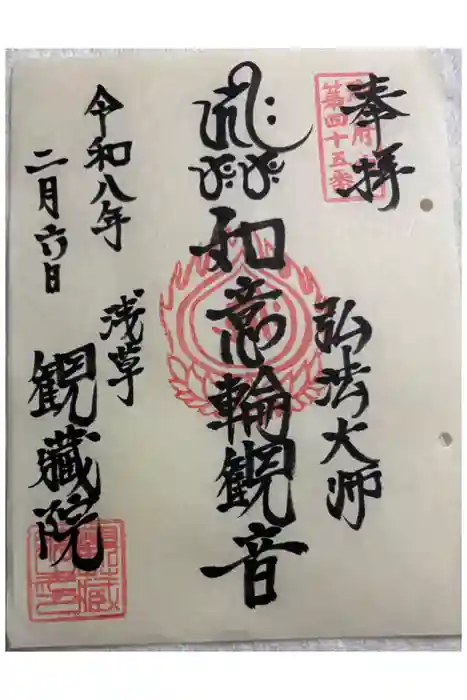 奉拝
第四十五番
弘法大師
如意輪観音
浅草
観藏院
令和八年
二月六日